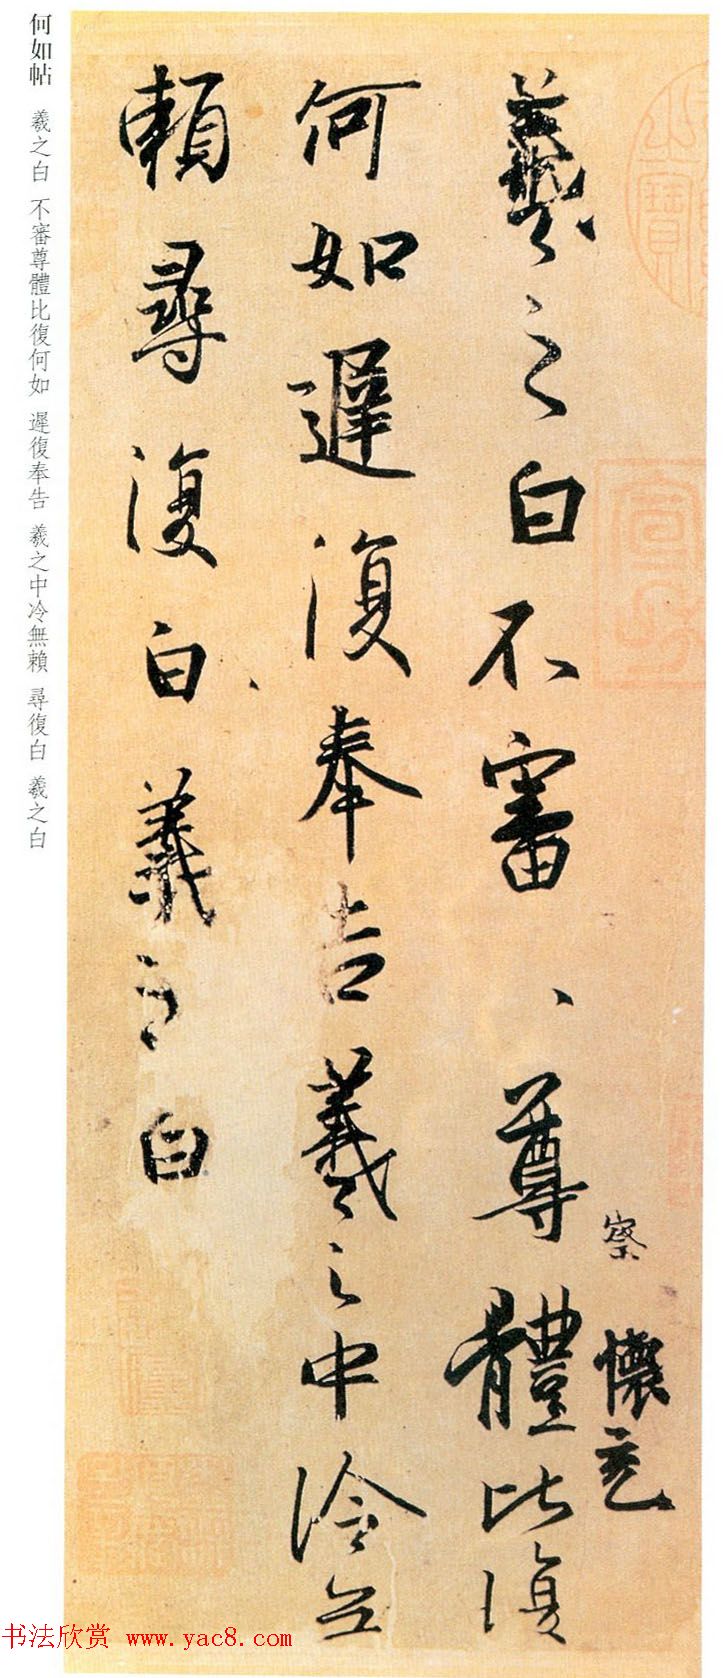 羲之白不審尊體比復
何如遲復奉告羲之中冷無
賴尋復白羲之白
察
懷充
何如帖 羲之白 不審尊體比復何如 遲復奉告 羲之中冷無賴 尋復白 羲之白
书法欣赏 www.yac8.com